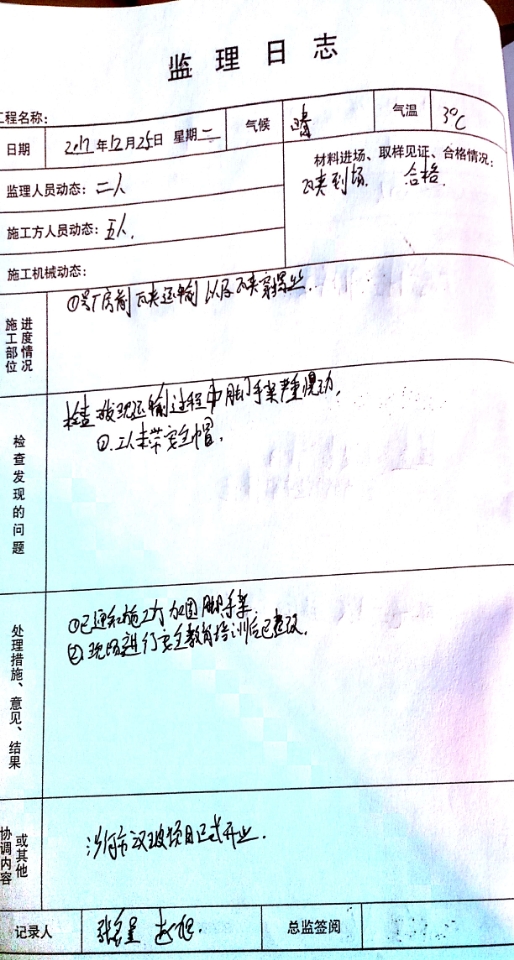 监理日志
工程名称:
日期 2017年12月25日 星期二 气候 晴 气温 3℃
监理人员动态: 二人
材料进场、取样见证、合格情况:
瓦夹到场. 合格.
施工方人员动态: 五人.
施工机械动态:
进度情况
施工部位
厂房前瓦夹运输以及瓦夹
检查发现的问题
检查发现运输过程中脚手架严重晃动.
②.工人未带安全帽.
处理措施、意见、结果
①已通知施工方加固脚手架
②.现场进行安全教育培训后已整改.
或其他
协调内容
项目正式开工.
记录人 总监签阅